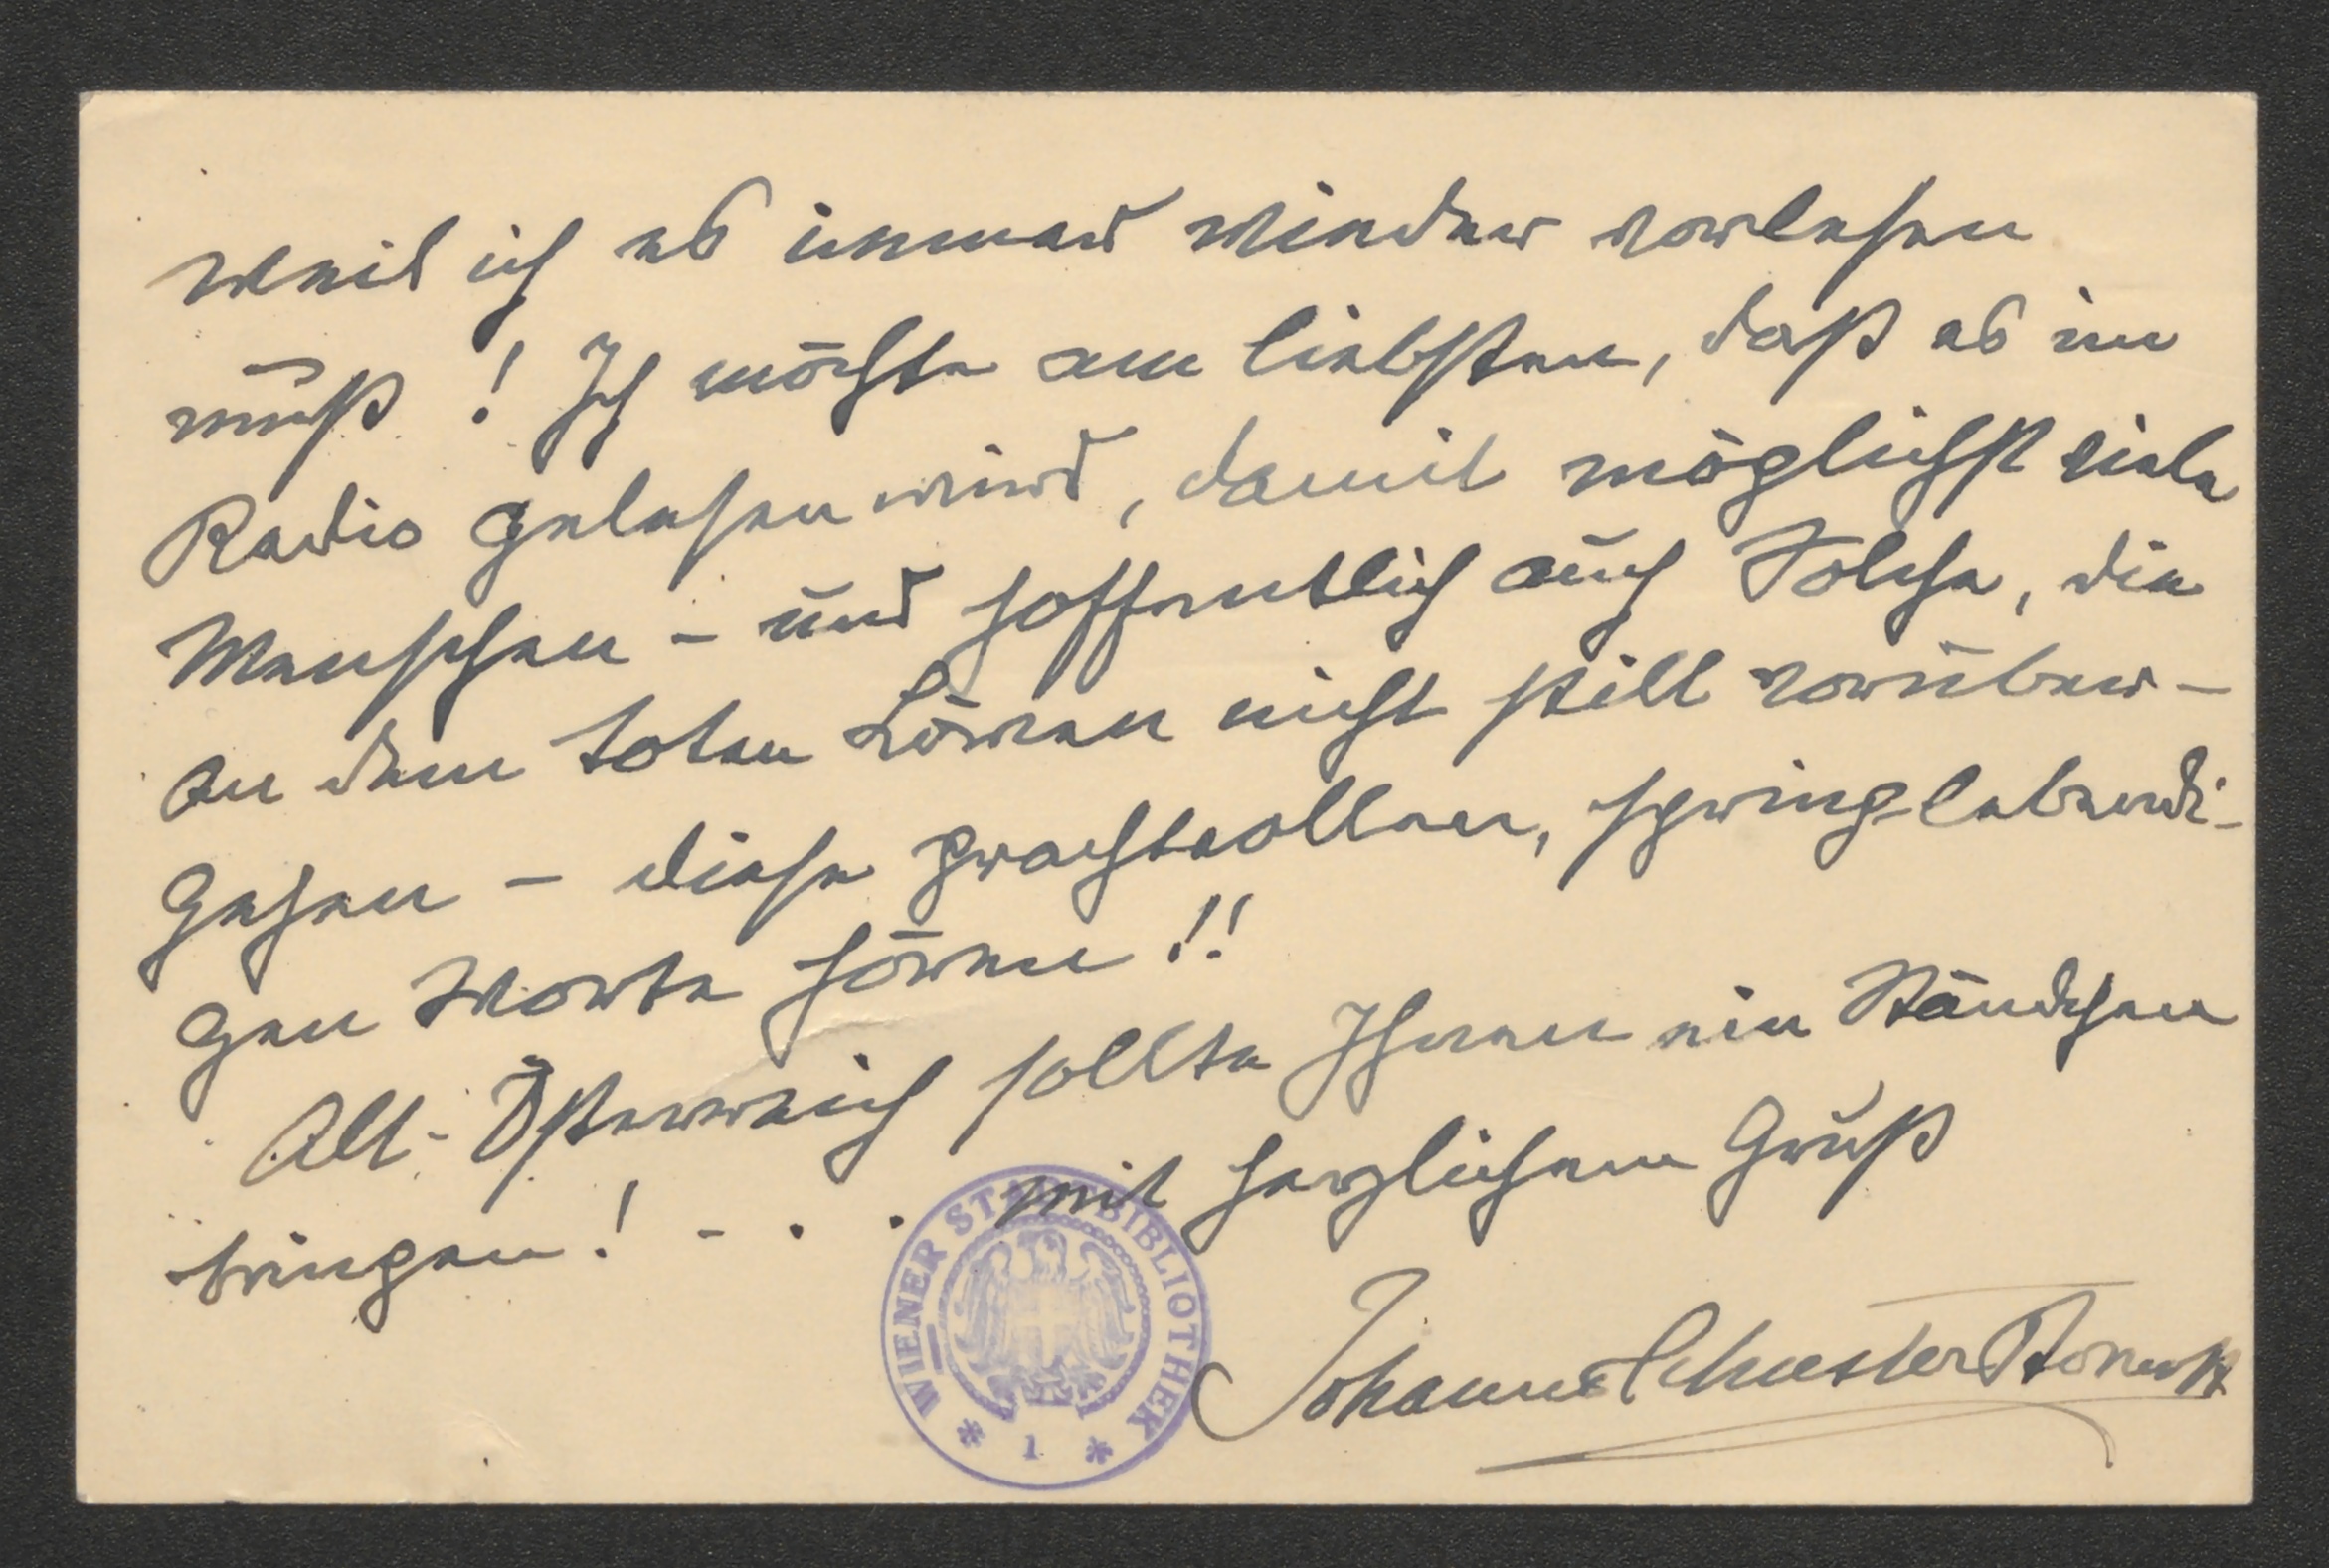 weil ich es immer wieder vorlesen
muß! Ich möchte am liebsten, daß es im
Radio gelesen wird, damit möglichst viele
Menschen – und hoffentlich auch Solche, die
an dem toten Löwen nicht still vorüber-
gehen – diese prachtvollen, springlebendi-
gen Worte hören!!
Alt-Österreich sollte Ihnen ein Ständchen
bringen! - . . mit herzlichem Gruß
Johanna Schuster
WIENER STADTBIBLIOTHEK
* 1 *